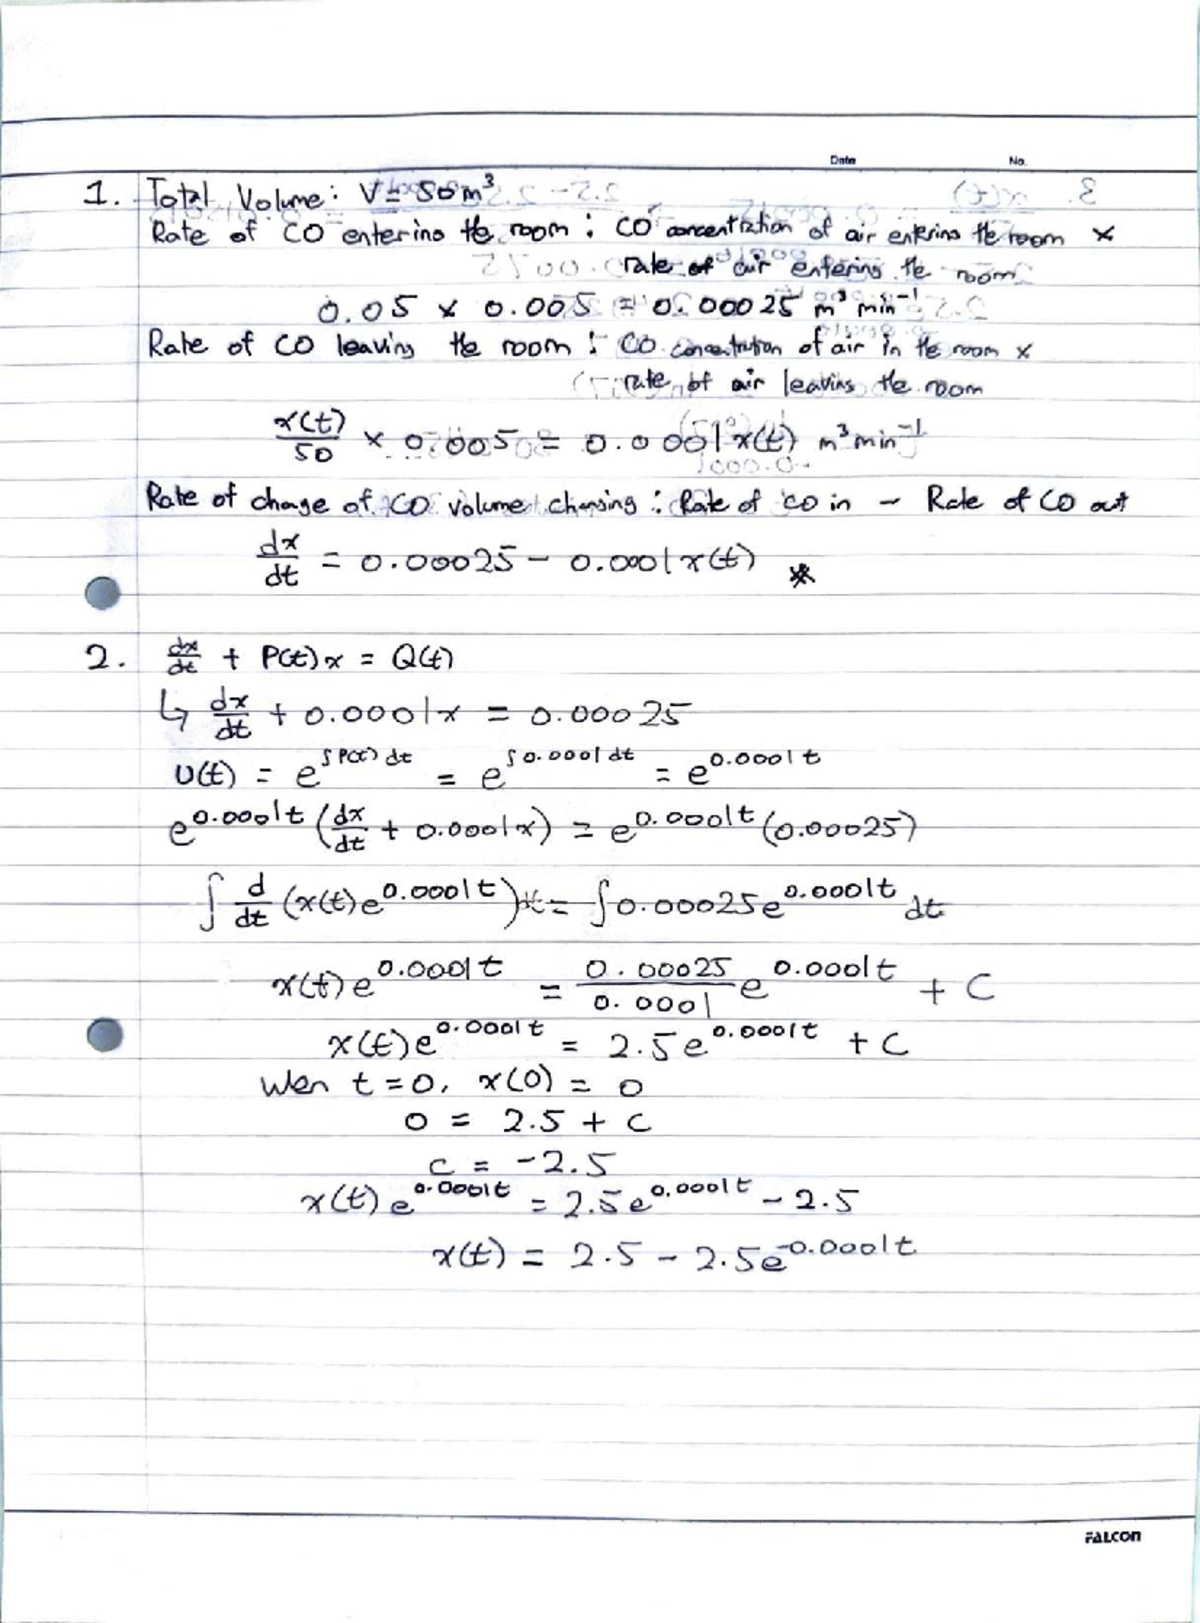 Date No.
1. Total Volume: V = 50 m³
Rate of CO entering the room : CO concentration of air entering the room ×
rate of air entering the room
0.05 × 0.005 = 0.00025 m³ min⁻¹
Rate of CO leaving the room : CO concentration of air in the room ×
rate of air leaving the room
x(t)/50 × 0.005 = 0.0001x(t) m³ min⁻¹
Rate of change of CO volume changing : Rate of CO in – Rate of CO out
dx/dt = 0.00025 – 0.0001x(t) *
2. dx/dt + P(t)x = Q(t)
↳ dx/dt + 0.0001x = 0.00025
U(t) = e^(∫P(t) dt) = e^(∫0.0001 dt) = e^(0.0001t)
e^(0.0001t) (dx/dt + 0.0001x) = e^(0.0001t) (0.00025)
∫ d/dt (x(t)e^(0.0001t)) dt = ∫0.00025e^(0.0001t) dt
x(t)e^(0.0001t) = 0.00025/0.0001 e^(0.0001t) + C
x(t)e^(0.0001t) = 2.5e^(0.0001t) + C
Wen t = 0, x(0) = 0
0 = 2.5 + C
C = -2.5
x(t)e^(0.0001t) = 2.5e^(0.0001t) - 2.5
x(t) = 2.5 - 2.5e^(-0.0001t)
FALCON